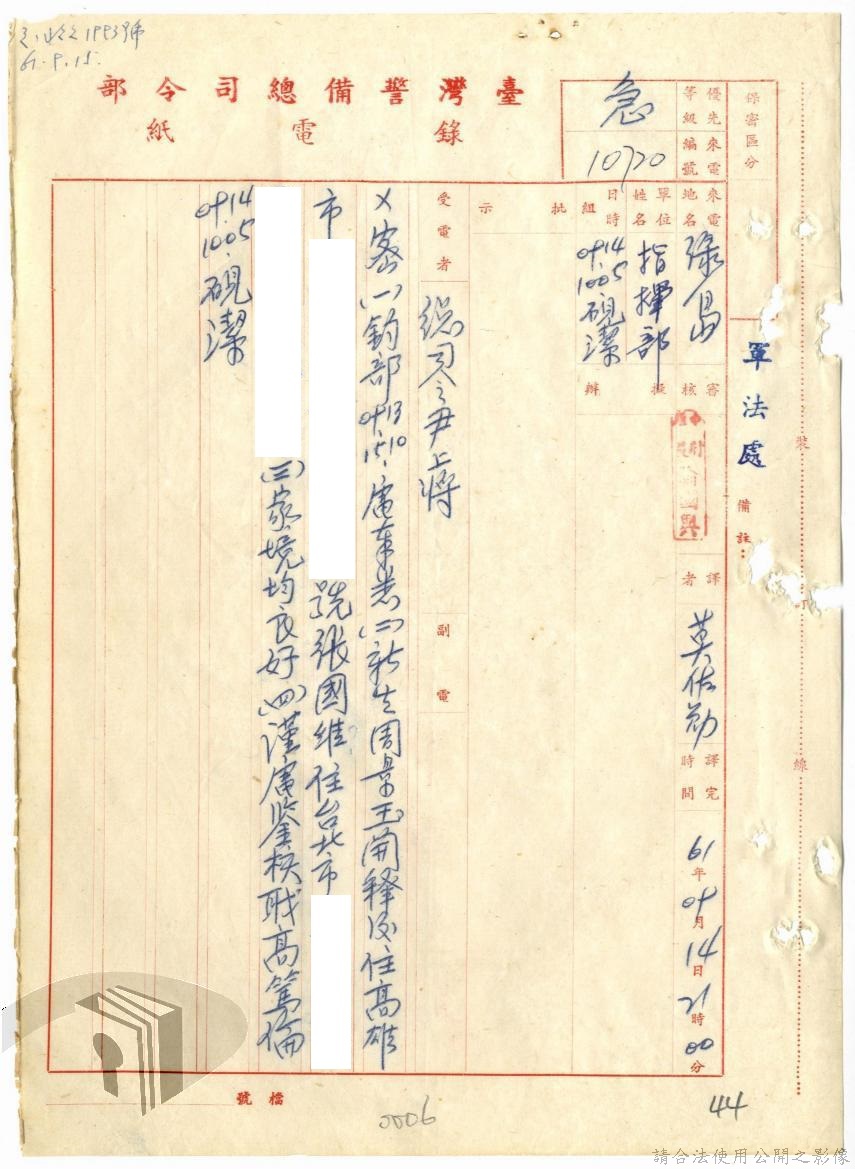 1993號
61.9.15.
臺灣警備總司令部
錄電紙
保密區分
軍法處
備註：
優先等級
急
來電編號
10720
來電地名
綠島
單位姓名
指揮部
日時組
0914 1005 硯潔
審核
擬辦
批示
譯者
莫佐勛
譯完時間
61年09月14日21時00分
受電者
總司令尹上將
副電
密(一)鈞部0913 1510.
電奉悉(二)新生周景玉開釋後住高雄
市
號張國維住台北市
(三)家境均良好(四)謹電鑒核職高篤倫
0914
1005.硯潔
裝訂線
檔號
0006
44
請合法使用公開之影像